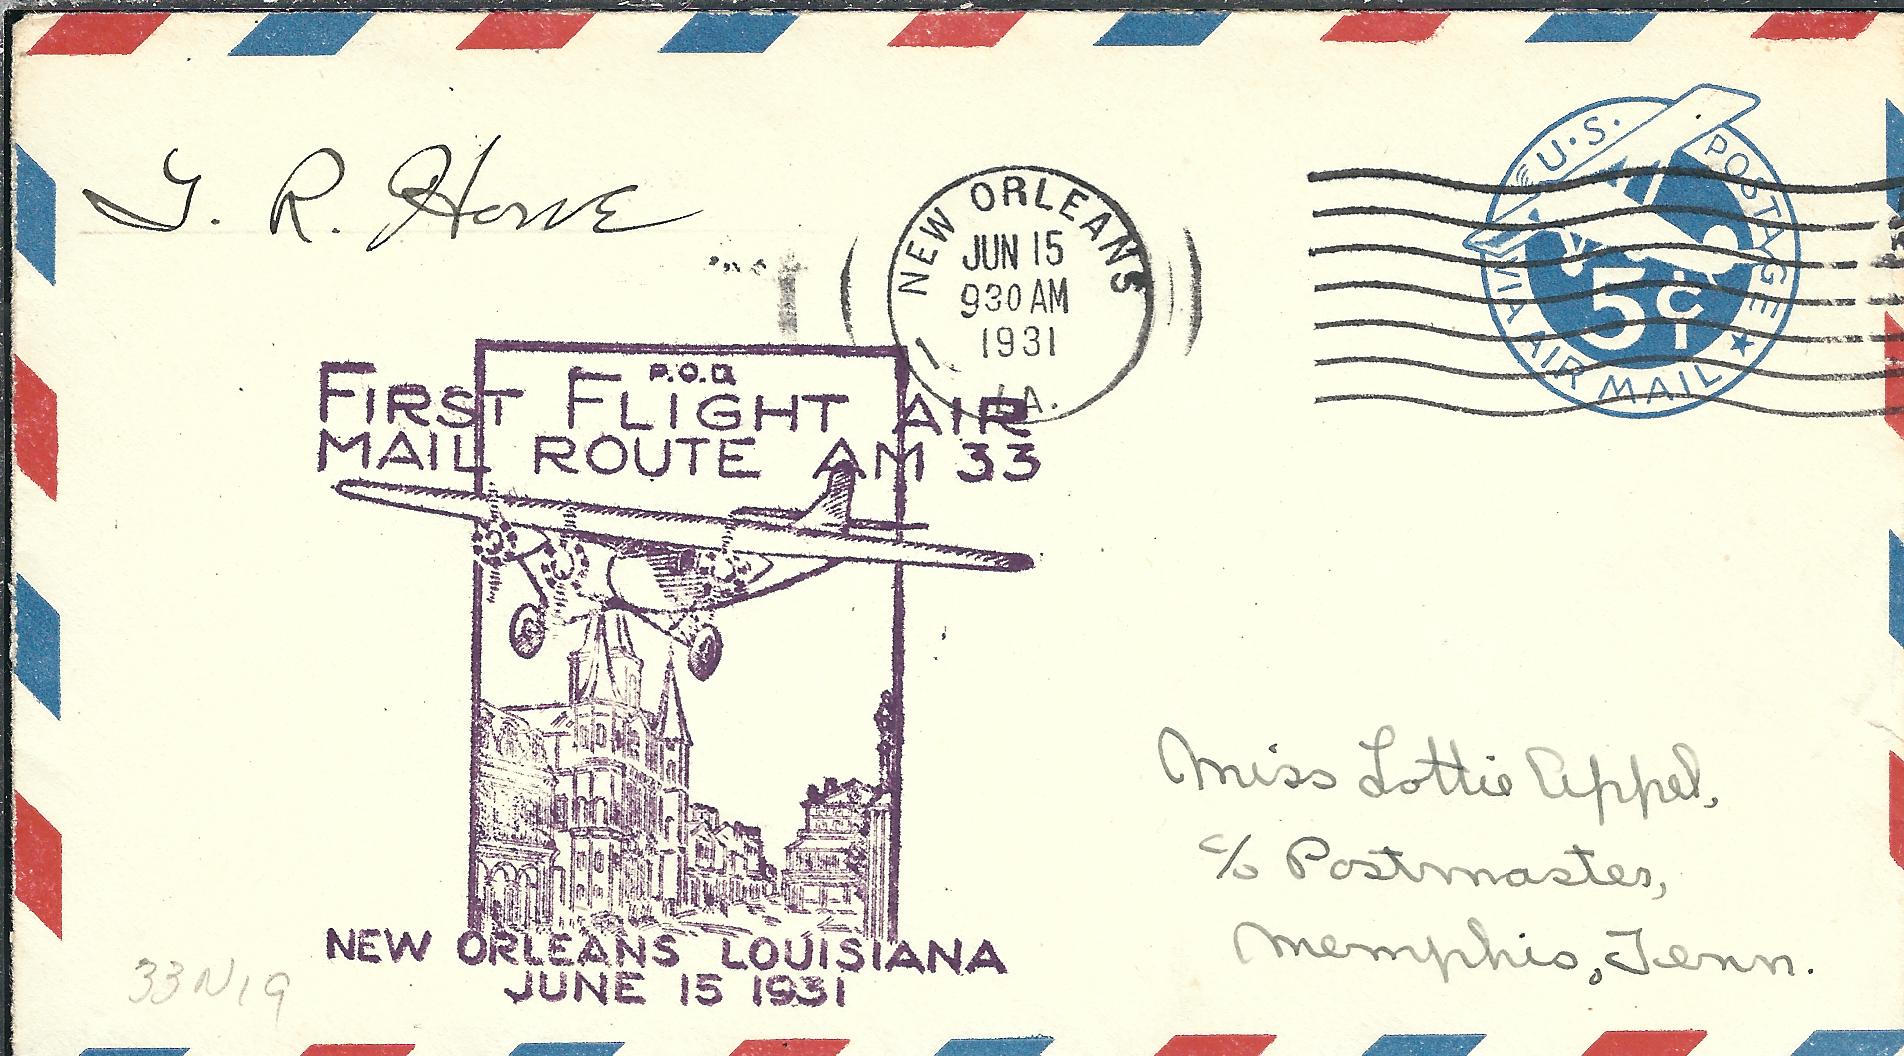 T. R. Howe
NEW ORLEANS
JUN 15
930 AM
1931
1
LA.
U·S· POSTAGE
5¢
VIA AIR MAIL
P.O.D.
FIRST FLIGHT AIR
MAIL ROUTE AM 33
NEW ORLEANS LOUISIANA
JUNE 15 1931
Miss Lottie Appel,
c/o Postmaster,
Memphis, Tenn.
33N19